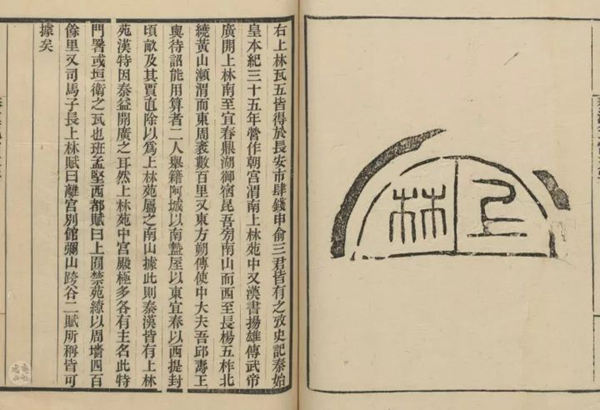 上林
右上林瓦五皆得於長安市肆錢申俞三君皆有之攷史記秦始
皇本紀三十五年營作朝宮渭南上林苑中又漢書揚雄傳武帝
廣開上林南至宜春鼎湖御宿昆吾旁南山而西至長楊五柞北
繞黃山瀕渭而東周袤數百里又東方朔傳使中大夫吾邱壽王
與待詔能用算者二人舉籍阿城以南盩厔以東宜春以西提封
頃畝及其賈直除以爲上林苑屬之南山據此則秦漢皆有上林
苑漢特因秦益開廣之耳然上林苑中宮殿極多各有主名此特
門署或垣衛之瓦也班孟堅西都賦曰上囿禁苑繚以周墻四百
餘里又司馬子長上林賦曰離宮別館彌山跨谷二賦所稱皆可
據矣